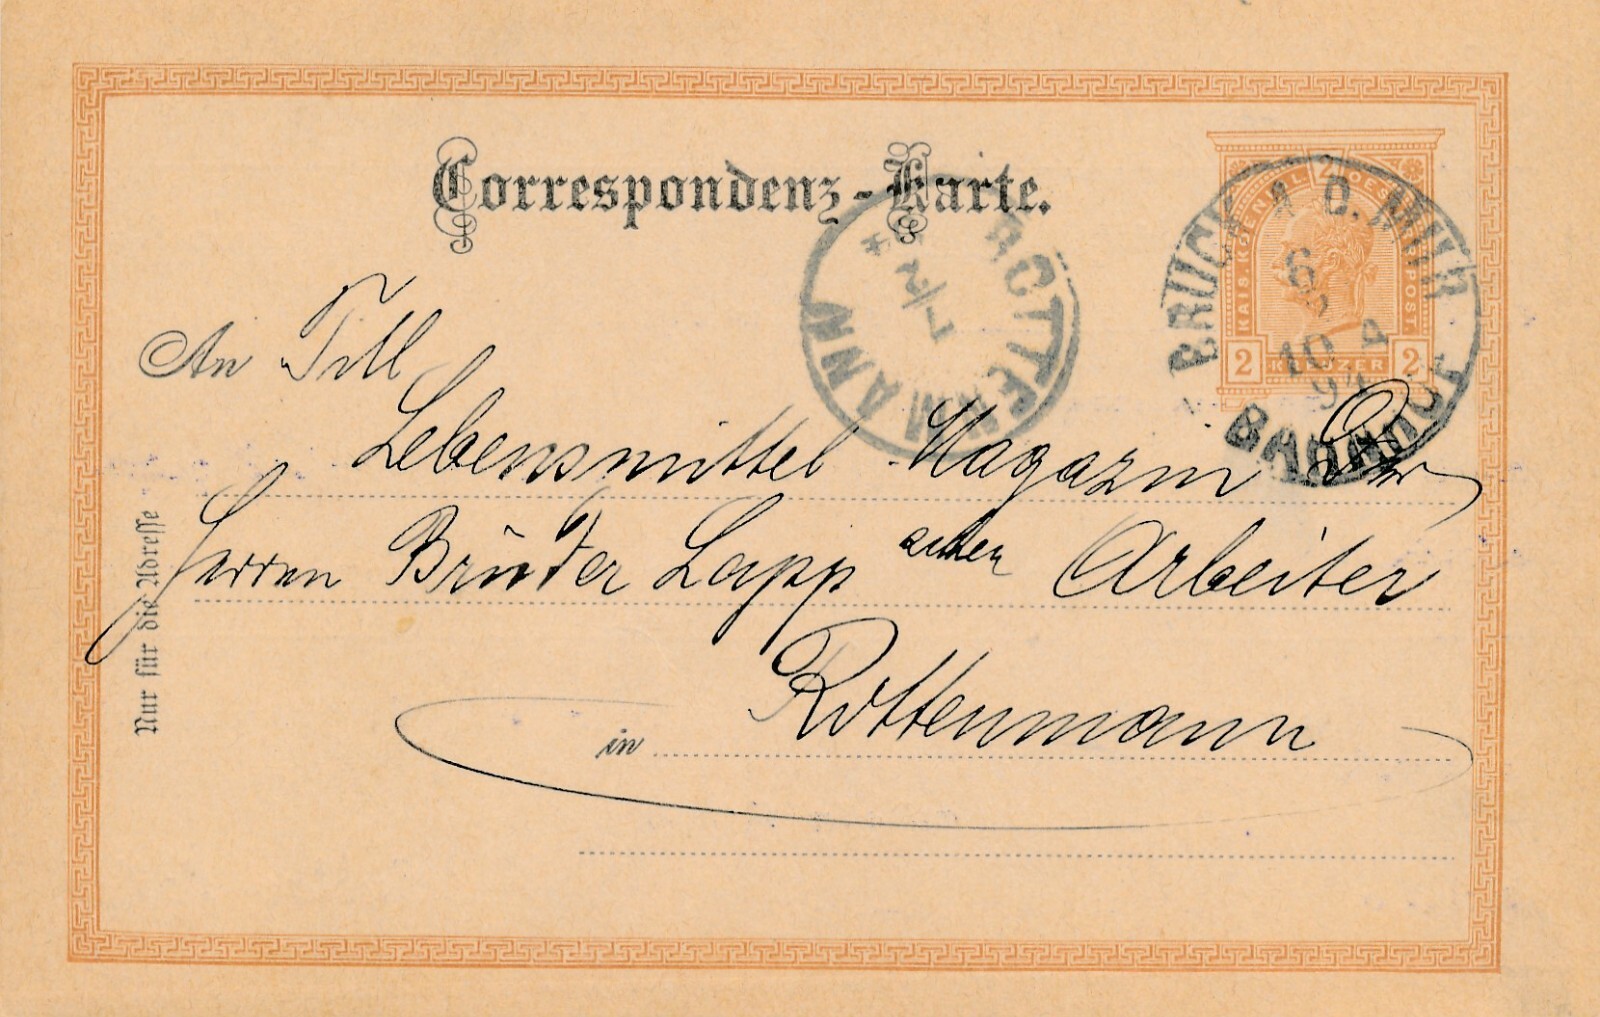 Correspondenz-Karte.
KAIS. KOENIGL. OESTERR. POST.
2
2 KREUZER 2
BRUCK A D. MUR
6
10 A
94
BAHNHOF
ROTTENMANN
7/2
An Titl
Lebensmittel Magazin der
Herren Brüder Lapp Arbeiter
in Rottenmann
Nur für die Adresse